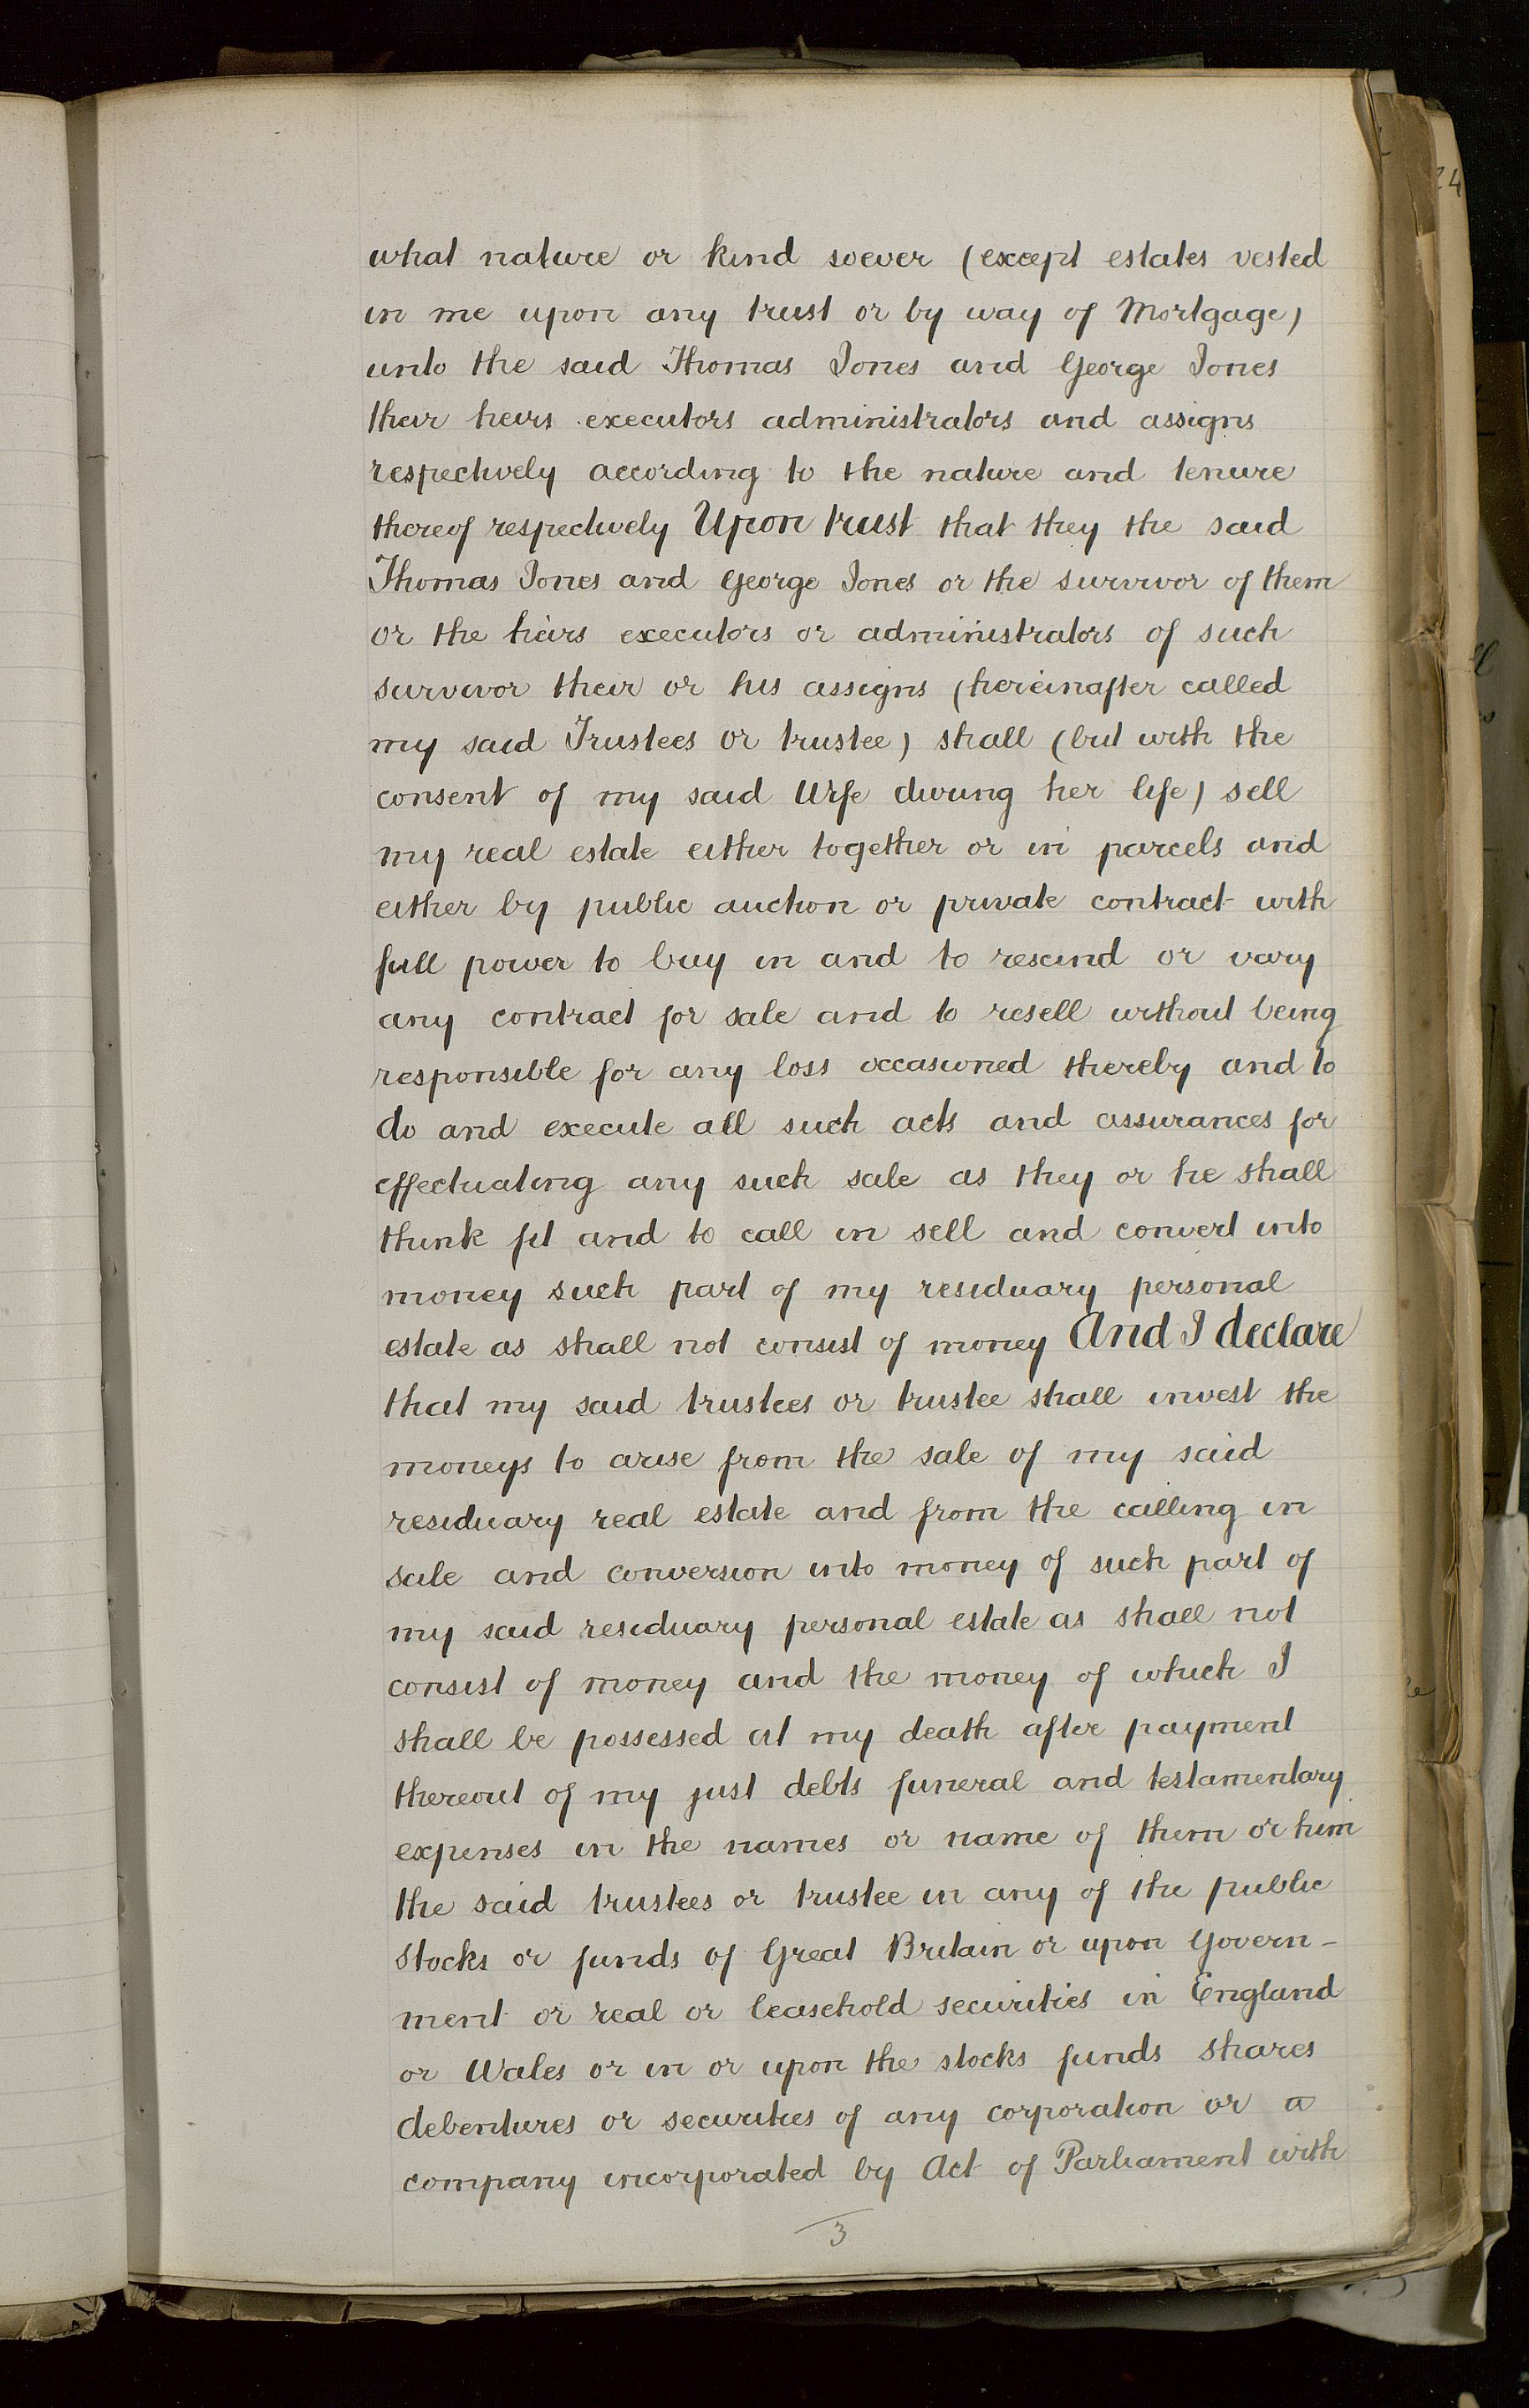 what nature or kind soever (except estates vested
in me upon any trust or by way of Mortgage)
unto the said Thomas Jones and George Jones
their heirs executors administrators and assigns
respectively according to the nature and tenure
thereof respectively Upon trust that they the said
Thomas Jones and George Jones or the survivor of them
or the heirs executors or administrators of such
survivor their or his assigns (hereinafter called
my said Trustees or trustee) shall (but with the
consent of my said Wife during her life) sell
my real estate either together or in parcels and
either by public auction or private contract with
full power to buy in and to rescind or vary
any contract for sale and to resell without being
responsible for any loss occasioned thereby and to
do and execute all such acts and assurances for
effectuating any such sale as they or he shall
think fit and to call in sell and convert into
money such part of my residuary personal
estate as shall not consist of money And I declare
that my said trustees or trustee shall invest the
moneys to arise from the sale of my said
residuary real estate and from the calling in
sale and conversion into money of such part of
my said residuary personal estate as shall not
consist of money and the money of which I
shall be possessed at my death after payment
thereout of my just debts funeral and testamentary
expenses in the names or name of them or him
the said trustees or trustee in any of the public
stocks or funds of Great Britain or upon Govern-
ment or real or leasehold securities in England
or Wales or in or upon the stocks funds shares
debentures or securities of any corporation or a
company incorporated by Act of Parliament with
3